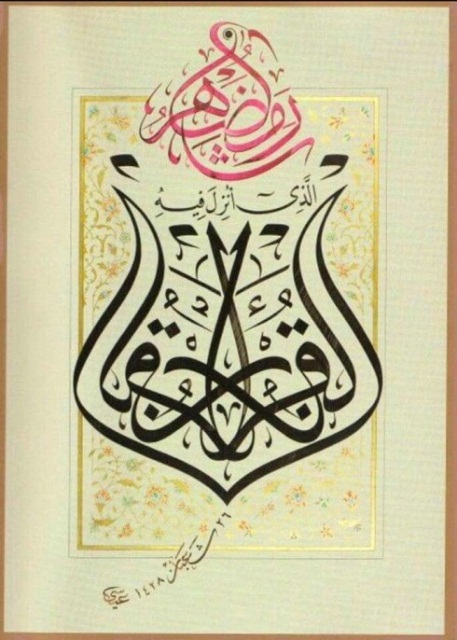 شهر رمضان
الَّذِي أُنْزِلَ فِيهِ
القرآن
٢٦ شعبان ١٤٢٨